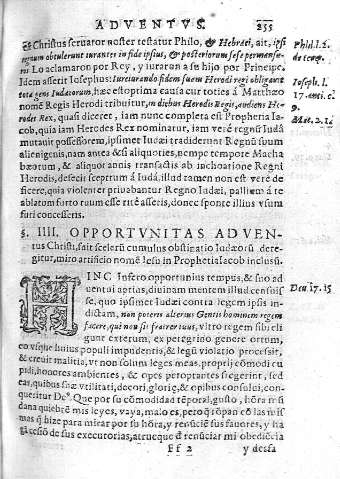 ADVENTVS. 255
Christus seruator noster testatur Philo, & Hebræi, ait, ipsi
regnum obtulerunt iurantes in fide ipsius, & posteriorum sese permansu-
ros Lo aclamaron por Rey, y iuraron a su hijo por Principe.
Idem asserit Iosephus: Iureiurando fidem suem Herodi regi obligauit
tota gens Iudæorum, hæc est optima causa cur toties á Matthæo
nomē Regis Herodi tribuitur, in diebus Herodis Regis, audiens He-
rodes Rex, quasi diceret, iam nunc completa est Prophetia Ia
cob, quia iam Herodes Rex nominatur, iam verè regnū Iudā
mutauit possessorem, ipsimet Iudæi tradiderunt Regnū suum
alienigenis, nam antea & si aliquoties, nempe tempore Macha
bæorum, & aliquot annis transactis ab inchoatione Regni
Herodis, defecit sceptrum á Iudá, illud tamen non est verè de
ficere, quia violenter priuabantur Regno Iudæi, palliem á te
ablatum forto tuum esse ritè asseris, donec sponte illius vsum
furi concesseris.
Phil. l. 2.
de temp.
Ioseph. l.
17. anti. c.
9.
Mat. 2. 1.
§. IIII. OPPORTVNITAS ADVEN-
tus Christi, fait scelerū cumulus obstinatio Iudæorū dete-
gitur, miro artificio nomē Iesv in Prophetia Iacob inclusū.
HINC infero opportunius tempus, & suo ad
uentui aptius, diuinam mentem illud censuis-
se, quo ipsimet Iudæi contra legem ipsis in-
dictam, non poteris alterius Gentis hominem regem
facere, qui non sit frater tuus, vltro regem sibi eli
gunt exterum, ex peregrino genere ortum,
eo vsque huius populi impudentia, & legū violatio processit,
& creuit malitia, vt non solum leges meas, proprij cōmodi cu
pidi, honores ambientes, & opes peroptantes fregerint, sed
eas, quibus suæ vtilitati, decori, gloriæ, & opibus consului, con-
queritur Deᵘˢ. Que por su cōmodidad tēporal, gusto, hōra mū
dana quiebrē mis leyes, vaya, malo es, pero q̄ rōpan cō las mis
mas q̄ hize para mirar por su hōra, y renūciē sus fauores, y ha
gā cessiō de sus executorias, atrueque d̄ renūciar mi obediēcia
Deu. 17. 15
Ff 2 y dessa